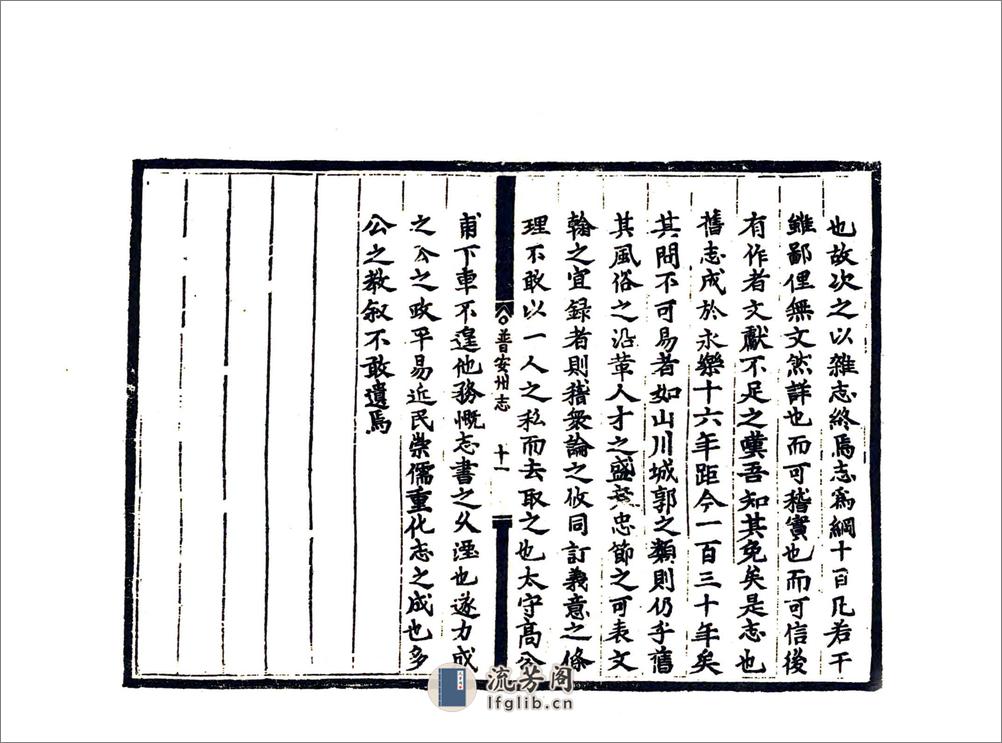 也故次之以雜志終焉志爲綱十目凡若干
雖鄙俚無文然詳也而可稽實也而可信後
有作者文獻不足之嘆吾知其免矣是志也
舊志成於永樂十六年距今一百三十年矣
其間不可易者如山川城郭之類則仍乎舊
其風俗之沿革人才之盛衰忠節之可表文
翰之宜録者則稽衆論之攸同訂義意之條
理不敢以一人之私而去取之也太守高公
普安州志
十一
甫下車不遑他務慨志書之久湮也遂力成
之公之政平易近民崇儒重化志之成也多
公之教叙不敢遺焉
流芳阁
lfglib.cn